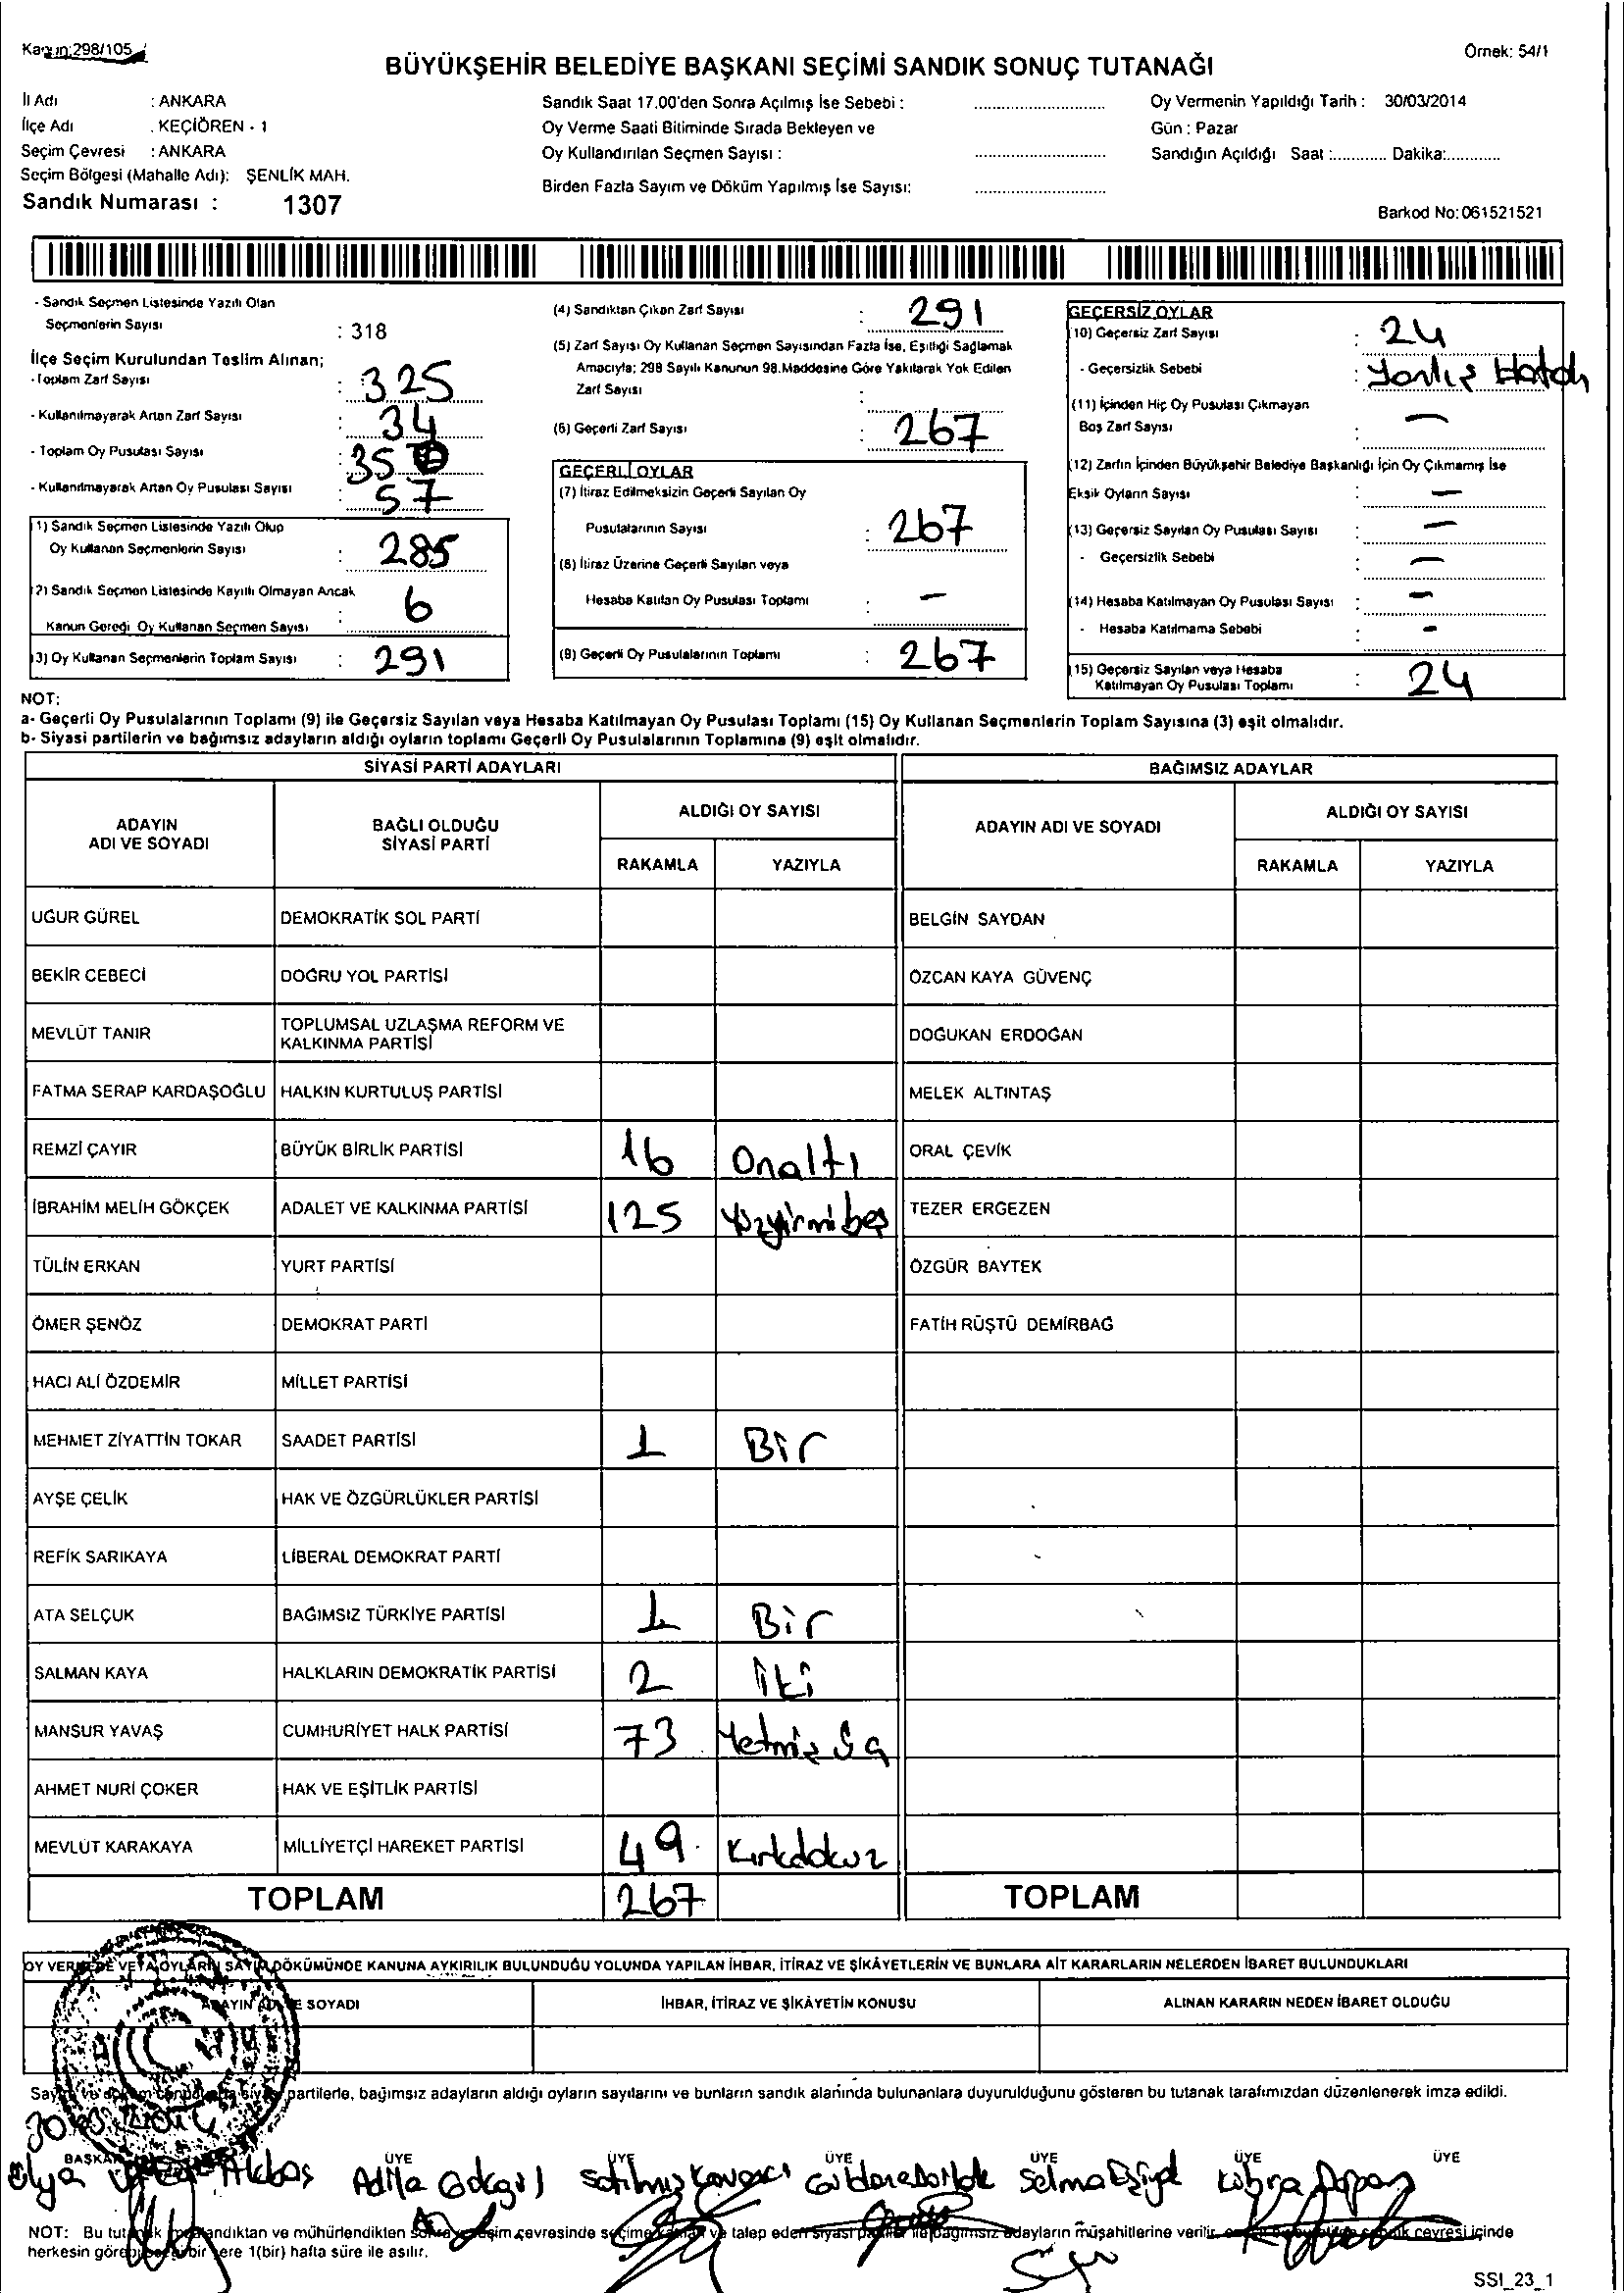 Kanun:298/105
Örnek: 54/1
BÜYÜKŞEHİR BELEDİYE BAŞKANI SEÇİMİ SANDIK SONUÇ TUTANAĞI
İl Adı : ANKARA
İlçe Adı : KEÇİÖREN - 1
Seçim Çevresi : ANKARA
Seçim Bölgesi (Mahalle Adı): ŞENLİK MAH.
Sandık Numarası : 1307
Sandık Saat 17.00'den Sonra Açılmış İse Sebebi :
Oy Verme Saati Bitiminde Sırada Bekleyen ve
Oy Kullandırılan Seçmen Sayısı :
Birden Fazla Sayım ve Döküm Yapılmış İse Sayısı:
Oy Vermenin Yapıldığı Tarih : 30/03/2014
Gün : Pazar
Sandığın Açıldığı Saat :............ Dakika:............
Barkod No:061521521
- Sandık Seçmen Listesinde Yazılı Olan
Seçmenlerin Sayısı : 318
İlçe Seçim Kurulundan Teslim Alınan;
- Toplam Zarf Sayısı : 325
- Kullanılmayarak Artan Zarf Sayısı : 34
- Toplam Oy Pusulası Sayısı : 35
- Kullanılmayarak Artan Oy Pusulası Sayısı : 57
(1) Sandık Seçmen Listesinde Yazılı Olup
Oy Kullanan Seçmenlerin Sayısı : 285
(2) Sandık Seçmen Listesinde Kayıtlı Olmayan Ancak
Kanun Gereği Oy Kullanan Seçmen Sayısı : 6
(3) Oy Kullanan Seçmenlerin Toplam Sayısı : 291
(4) Sandıktan Çıkan Zarf Sayısı : 291
(5) Zarf Sayısı Oy Kullanan Seçmen Sayısından Fazla İse, Eşitliği Sağlamak
Amacıyla; 298 Sayılı Kanunun 98.Maddesine Göre Yakılarak Yok Edilen
Zarf Sayısı :
(6) Geçerli Zarf Sayısı : 267
GEÇERLİ OYLAR
(7) İtiraz Edilmeksizin Geçerli Sayılan Oy
Pusulalarının Sayısı : 267
(8) İtiraz Üzerine Geçerli Sayılan veya
Hesaba Katılan Oy Pusulası Toplamı : -
(9) Geçerli Oy Pusulalarının Toplamı : 267
GEÇERSİZ OYLAR
(10) Geçersiz Zarf Sayısı : 24
- Geçersizlik Sebebi : Yanlış
(11) İçinden Hiç Oy Pusulası Çıkmayan
Boş Zarf Sayısı : -
(12) Zarfın İçinden Büyükşehir Belediye Başkanlığı İçin Oy Çıkmamış İse
Eksik Oyların Sayısı : -
(13) Geçersiz Sayılan Oy Pusulası Sayısı : -
- Geçersizlik Sebebi : -
(14) Hesaba Katılmayan Oy Pusulası Sayısı : -
- Hesaba Katılmama Sebebi : -
(15) Geçersiz Sayılan veya Hesaba
Katılmayan Oy Pusulası Toplamı : 24
NOT:
a- Geçerli Oy Pusulalarının Toplamı (9) ile Geçersiz Sayılan veya Hesaba Katılmayan Oy Pusulası Toplamı (15) Oy Kullanan Seçmenlerin Toplam Sayısına (3) eşit olmalıdır.
b- Siyasi partilerin ve bağımsız adayların aldığı oyların toplamı Geçerli Oy Pusulalarının Toplamına (9) eşit olmalıdır.
SİYASİ PARTİ ADAYLARI BAĞIMSIZ ADAYLAR
ADAYIN ADI VE SOYADI BAĞLI OLDUĞU SİYASİ PARTİ ALDIĞI OY SAYISI ADAYIN ADI VE SOYADI ALDIĞI OY SAYISI
RAKAMLA YAZIYLA RAKAMLA YAZIYLA
UĞUR GÜREL DEMOKRATİK SOL PARTİ BELGİN SAYDAN
BEKİR CEBECİ DOĞRU YOL PARTİSİ ÖZCAN KAYA GÜVENÇ
MEVLÜT TANIR TOPLUMSAL UZLAŞMA REFORM VE KALKINMA PARTİSİ DOĞUKAN ERDOĞAN
FATMA SERAP KARDAŞOĞLU HALKIN KURTULUŞ PARTİSİ MELEK ALTINTAŞ
REMZİ ÇAYIR BÜYÜK BİRLİK PARTİSİ 16 Onaltı ORAL ÇEVİK
İBRAHİM MELİH GÖKÇEK ADALET VE KALKINMA PARTİSİ 125 Yüzyirmibeş TEZER ERGEZEN
TÜLİN ERKAN YURT PARTİSİ ÖZGÜR BAYTEK
ÖMER ŞENÖZ DEMOKRAT PARTİ FATİH RÜŞTÜ DEMİRBAĞ
HACI ALİ ÖZDEMİR MİLLET PARTİSİ
MEHMET ZİYATTİN TOKAR SAADET PARTİSİ 1 Bir
AYŞE ÇELİK HAK VE ÖZGÜRLÜKLER PARTİSİ
REFİK SARIKAYA LİBERAL DEMOKRAT PARTİ
ATA SELÇUK BAĞIMSIZ TÜRKİYE PARTİSİ 1 Bir
SALMAN KAYA HALKLARIN DEMOKRATİK PARTİSİ 2 İki
MANSUR YAVAŞ CUMHURİYET HALK PARTİSİ 73 Yetmiş üç
AHMET NURİ ÇOKER HAK VE EŞİTLİK PARTİSİ
MEVLÜT KARAKAYA MİLLİYETÇİ HAREKET PARTİSİ 49 Kırkdokuz
TOPLAM 267 TOPLAM
OY VERMEDE VEYA OYLARIN SAYIM DÖKÜMÜNDE KANUNA AYKIRILIK BULUNDUĞU YOLUNDA YAPILAN İHBAR, İTİRAZ VE ŞİKÂYETLERİN VE BUNLARA AİT KARARLARIN NELERDEN İBARET BULUNDUKLARI
ADAYIN ADI VE SOYADI İHBAR, İTİRAZ VE ŞİKÂYETİN KONUSU ALINAN KARARIN NEDEN İBARET OLDUĞU
partilerle, bağımsız adayların aldığı oyların sayılarını ve bunların sandık alanında bulunanlara duyurulduğunu gösteren bu tutanak tarafımızdan düzenlenerek imza edildi.
30.03.2014
BAŞKAN ÜYE ÜYE ÜYE ÜYE ÜYE ÜYE
Akbaş Adile Gökgül Satılmış Kavakcı Selma Kübra
NOT: Bu tutanak imzalandıktan ve mühürlendikten sonra seçim çevresinde seçime katılan ve talep eden siyasi partiler ile bağımsız adayların müşahitlerine verilir, sandık çevresi içinde
herkesin görebileceği bir yere 1(bir) hafta süre ile asılır.
SSI_23_1